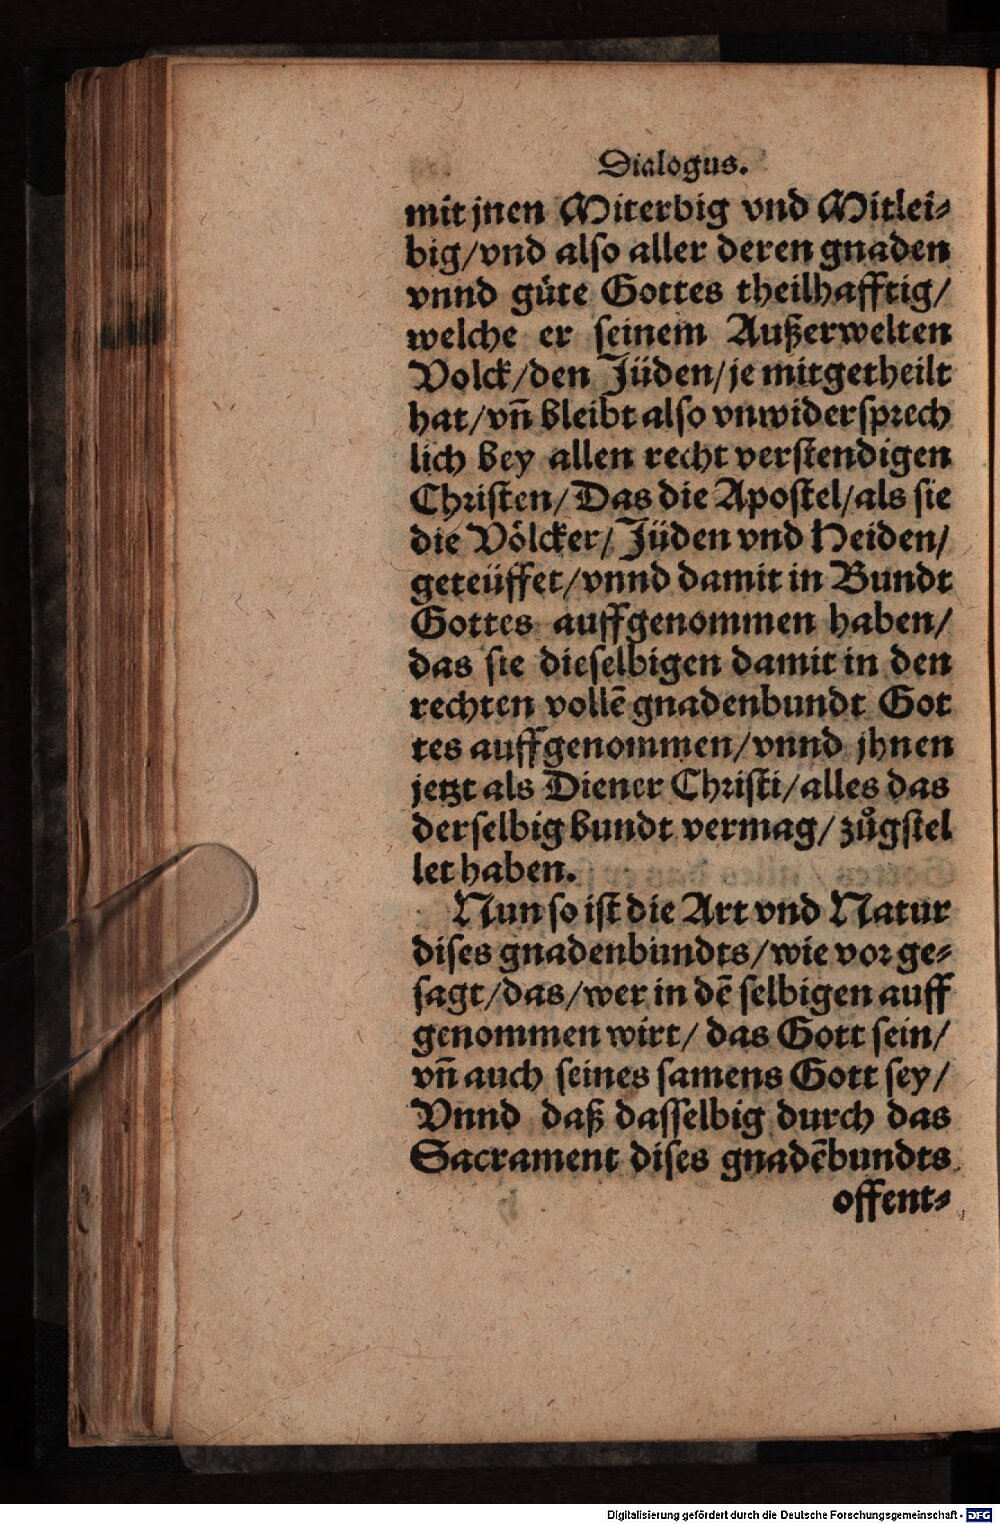 Dialogus.
mit jnen Miterbig vnd Mitlei⸗
big/vnd also aller deren gnaden
vnnd gůte Gottes theilhafftig/
welche er seinem Außerwelten
Volck/den Jüden/je mitgetheilt
hat/vn̄ bleibt also vnwidersprech
lich bey allen recht verstendigen
Christen/Das die Apostel/als sie
die Völcker/Jüden vnd Heiden/
geteüffet/vnnd damit in Bundt
Gottes auffgenommen haben/
das sie dieselbigen damit in den
rechten vollē gnadenbundt Got
tes auffgenommen/vnnd jhnen
jetzt als Diener Christi/alles das
derselbig bundt vermag/zůgstel
let haben.
Nun so ist die Art vnd Natur
dises gnadenbundts/wie vor ge⸗
sagt/das/wer in dē selbigen auff
genommen wirt/ das Gott sein/
vn̄ auch seines samens Gott sey/
Vnnd daß dasselbig durch das
Sacrament dises gnadēbundts
offent⸗
Digitalisierung gefördert durch die Deutsche Forschungsgemeinschaft - DFG